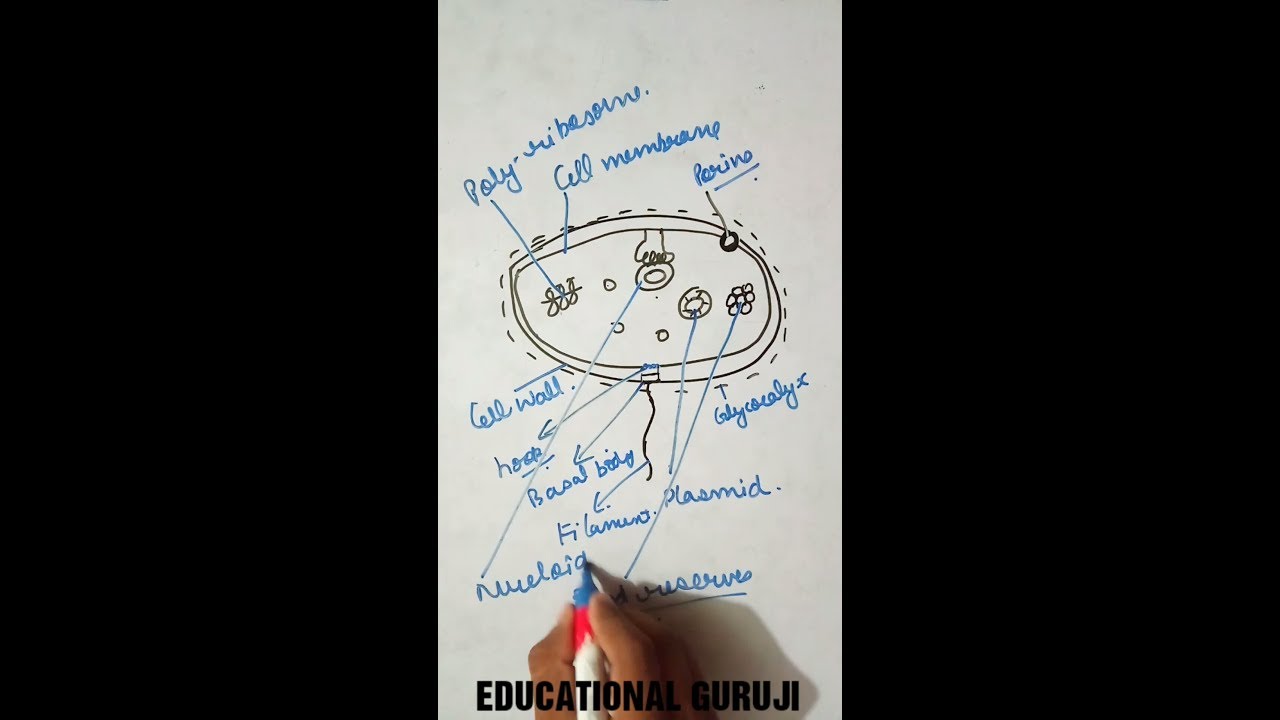 Poly-ribosome.
Cell membrane
Porins
Cell Wall.
Glycocalyx
hook
Basal body
Filament.
Plasmid.
Nucleoid
reserves
EDUCATIONAL GURUJI